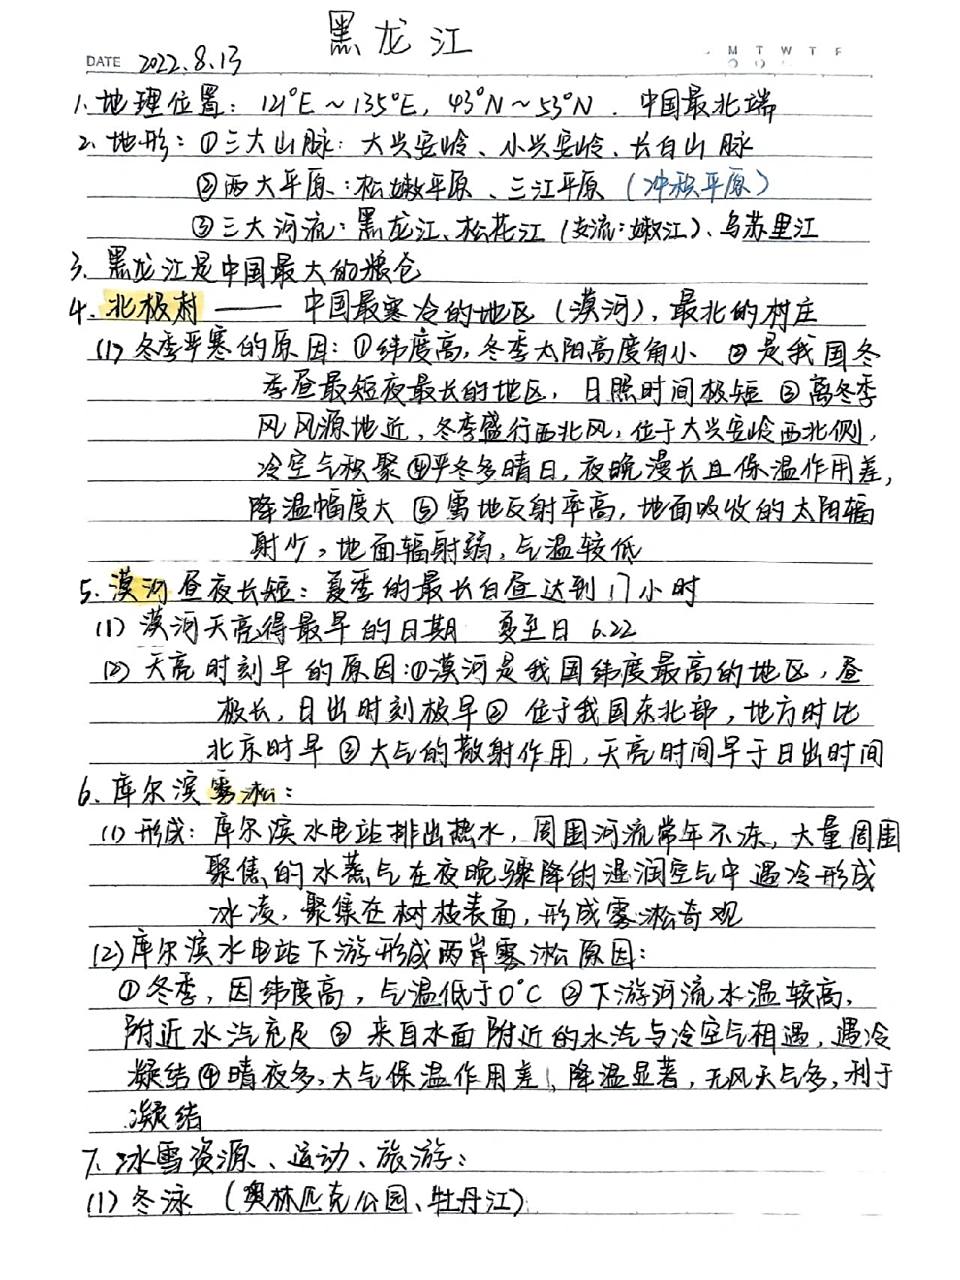 黑龙江
DATE 2022.8.13
M T W T F
1.地理位置：121°E～135°E，43°N～53°N．中国最北端
2、地形：①三大山脉：大兴安岭、小兴安岭、长白山脉
②两大平原：松嫩平原、三江平原（冲积平原）
③三大河流：黑龙江、松花江（支流：嫩江）、乌苏里江
3、黑龙江是中国最大的粮仓
4、北极村——中国最寒冷的地区（漠河），最北的村庄
(1)冬季严寒的原因：①纬度高，冬季太阳高度角小 ②是我国冬
季昼最短夜最长的地区，日照时间极短 ③离冬季
风风源地近，冬季盛行西北风，位于大兴安岭西北侧，
冷空气积聚④严冬多晴日，夜晚漫长且保温作用差，
降温幅度大 ⑤雪地反射率高，地面吸收的太阳辐
射少，地面辐射弱，气温较低
5、漠河昼夜长短：夏季的最长白昼达到17小时
(1)漠河天亮得最早的日期 夏至日 6.22
(2)天亮时刻早的原因：①漠河是我国纬度最高的地区，昼
极长，日出时刻极早② 位于我国东北部，地方时比
北京时早 ③大气的散射作用，天亮时间早于日出时间
6、库尔滨雾凇：
(1)形成：库尔滨水电站排出热水，周围河流常年不冻，大量周围
聚集的水蒸气在夜晚骤降的湿润空气中遇冷形成
冰凌，聚集在树枝表面，形成雾凇奇观
(2)库尔滨水电站下游形成两岸雾凇原因：
①冬季，因纬度高，气温低于0°C ②下游河流水温较高，
附近水汽充足 ③来自水面附近的水汽与冷空气相遇，遇冷
凝结④晴夜多，大气保温作用差，降温显著，无风天气多，利于
凝结
7、冰雪资源、运动、旅游：
(1)冬泳（奥林匹克公园、牡丹江）